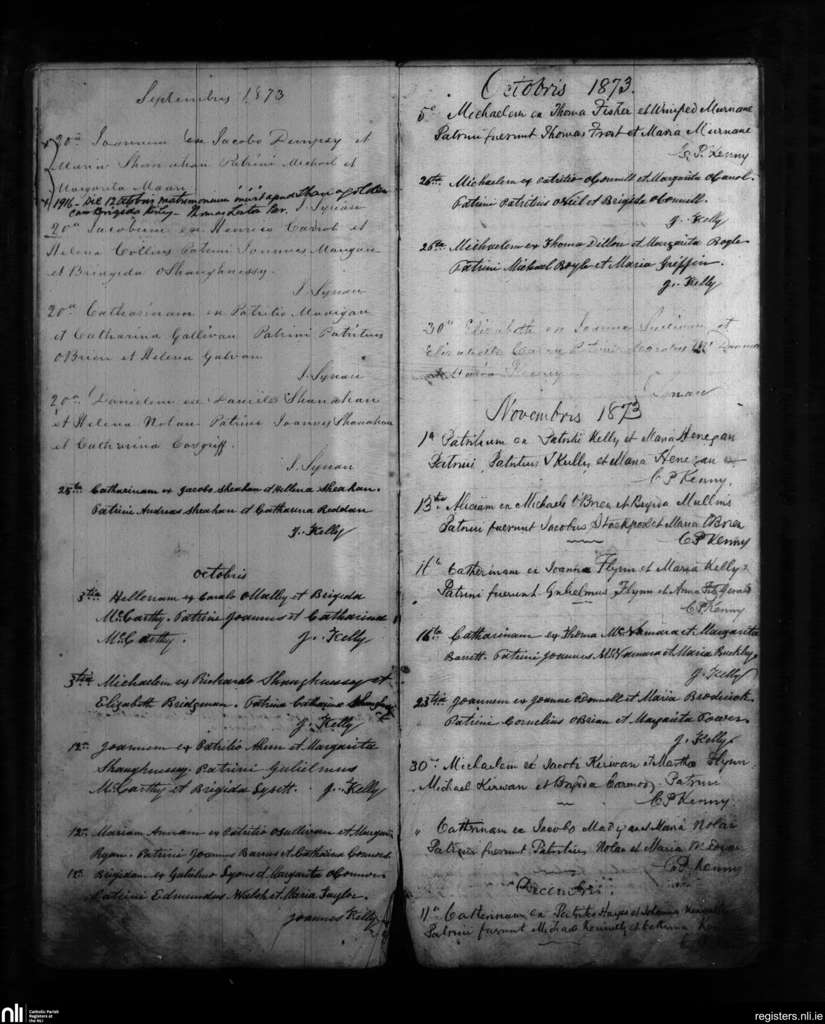 Septembris 1873
20a Joannem ex Jacobo Dempsey et
Maria Shanahan Patrini Michael et
Margarita Maari
1916 - Die 12 Octobris matrimonium
cum Brigida Kirby - Thomas Lar. J. Synan
20a Jacobum ex Henrico Carrol et
Helena Collins Patrini Joannes Mangan
et Bridgida OShaughnessy.
J. Synan
20a Catharinam ex Patritio Madigan
et Catharina Gallivan Patrini Patritius
OBrien et Helena Galvan
J. Synan
20a Danielem ex Daniele Shanahan
et Helena Nolan Patrini Joannes Shanahan
et Catharina Cosgriff.
J. Synan
25ta Catharinam ex Jacobo Sheahan et Hellena Sheahan.
Patrini Andreas Sheahan et Catharina Reddan
J. Kelly
Octobris
3tia Hellenam ex Carolo OMally et Brigida
McCarthy. Patrini Joannes et Catharina
McCarthy. J. Kelly
3tia Michaelem ex Richardo Shaughnessy et
Elizabeth Bridgeman. Patrina Catharina Shaughnessy
J. Kelly
12a Joannem ex Patritio Ahern et Margarita
Shaughnessy. Patrini Gulielmus
McCarthy et Brigida Lysett. J. Kelly
12a Mariam Annam ex Patritio OSullivan et Margarita
Ryan. Patrini Joannes Barrus et Catharina Connors
12a Brigidam ex Gulielmo Lyons et Margarita OConnor
Patrini Edmundus Walsh et Maria Taylor.
Joannes Kelly
Octobris 1873.
5o Michaelem ex Thoma Fisher et Winifred Murnane
Patrini fuerunt Thomas Frost et Maria Murnane
C. P. Kenny
26ta Michaelem ex Patritio OConnell et Margarita OCarol.
Patrini Patritius ONeil et Brigida OConnell.
J. Kelly
26ta Michaelem ex Thoma Dillon et Margarita Boyle
Patrini Michael Boyle et Maria Griffin.
J. Kelly
30a Elizabeth ex Joanne Sullivan et
Elizabetha Patrini
Maria
Synan
Novembris 1873
1a Patritium ex Patritio Kelly et Maria Henegan
Patrini, Patritius Kelly, et Maria Henegan
C P Kenny.
13ta Aliciam ex Michaele OBrea et Brigida Mullins
Patrini fuerunt Jacobus Stockpool et Maria OBrea
C P Kenny
16ta Catherinam ex Joanne Flynn et Maria Kelly
Patrini fuerunt Gulielmus Flynn et Anna FitzGerald
C P Kenny
16ta Catharinam ex Thoma McNamara et Margarita
Barrett. Patrini Joannes McNamara et Maria Buckley
J. Kelly
23tia Joannem ex Joanne ODonnell et Maria Broderick.
Patrini Cornelius OBrian et Margarita Power
J. Kelly
30a Michaelem ex Jacobo Kerwan et Martha Flynn
Michael Kirwan et Brigida Cormody. Patrini
C P Kenny.
" Catherinam ex Jacobo et Maria Nolan
Patrini fuerunt Patritius Nolan et Maria
C P Kenny
Decembri
11a Catherinam ex Patritio Hayes et Johanna
Patrini fuerunt Michael Kennelly et Caterina
nli
Catholic Parish
Registers at
the NLI
registers.nli.ie